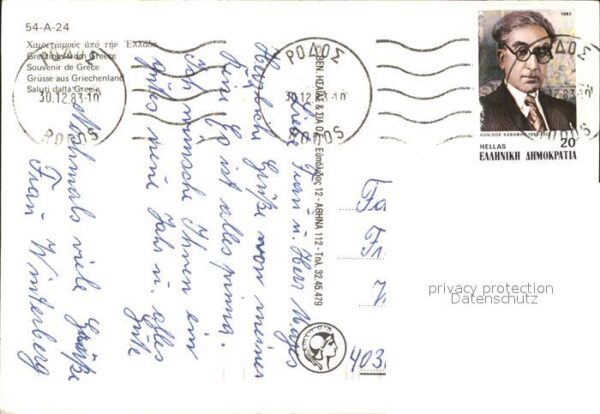 54-A-24
Χαιρετισμούς ἀπό τήν Ἑλλάδα
Greetings from Greece
Souvenir de Grèce
Grüsse aus Griechenland
Saluti dalla Grecia
ΡΟΔΟΣ
30.12.83-10
RODOS
ΡΟΔΟΣ
30.12.83-10
RODOS
1983
ΚΩΝ/ΝΟΣ ΚΑΒΑΦΗΣ
HELLAS
20
ΕΛΛΗΝΙΚΗ ΔΗΜΟΚΡΑΤΙΑ
Liebe Frau u. Herr
Herzliche Grüße von meiner
Reise. Es ist alles prima.
Ich wünsche Ihnen ein
gutes neue Jahr u. alles
Gute
Nochmals viele Grüße
Frau Winterberg
12 - ΑΘΗΝΑ 112 - Τηλ. 32.45.479
Fa
Fr
W
403
privacy protection
Datenschutz